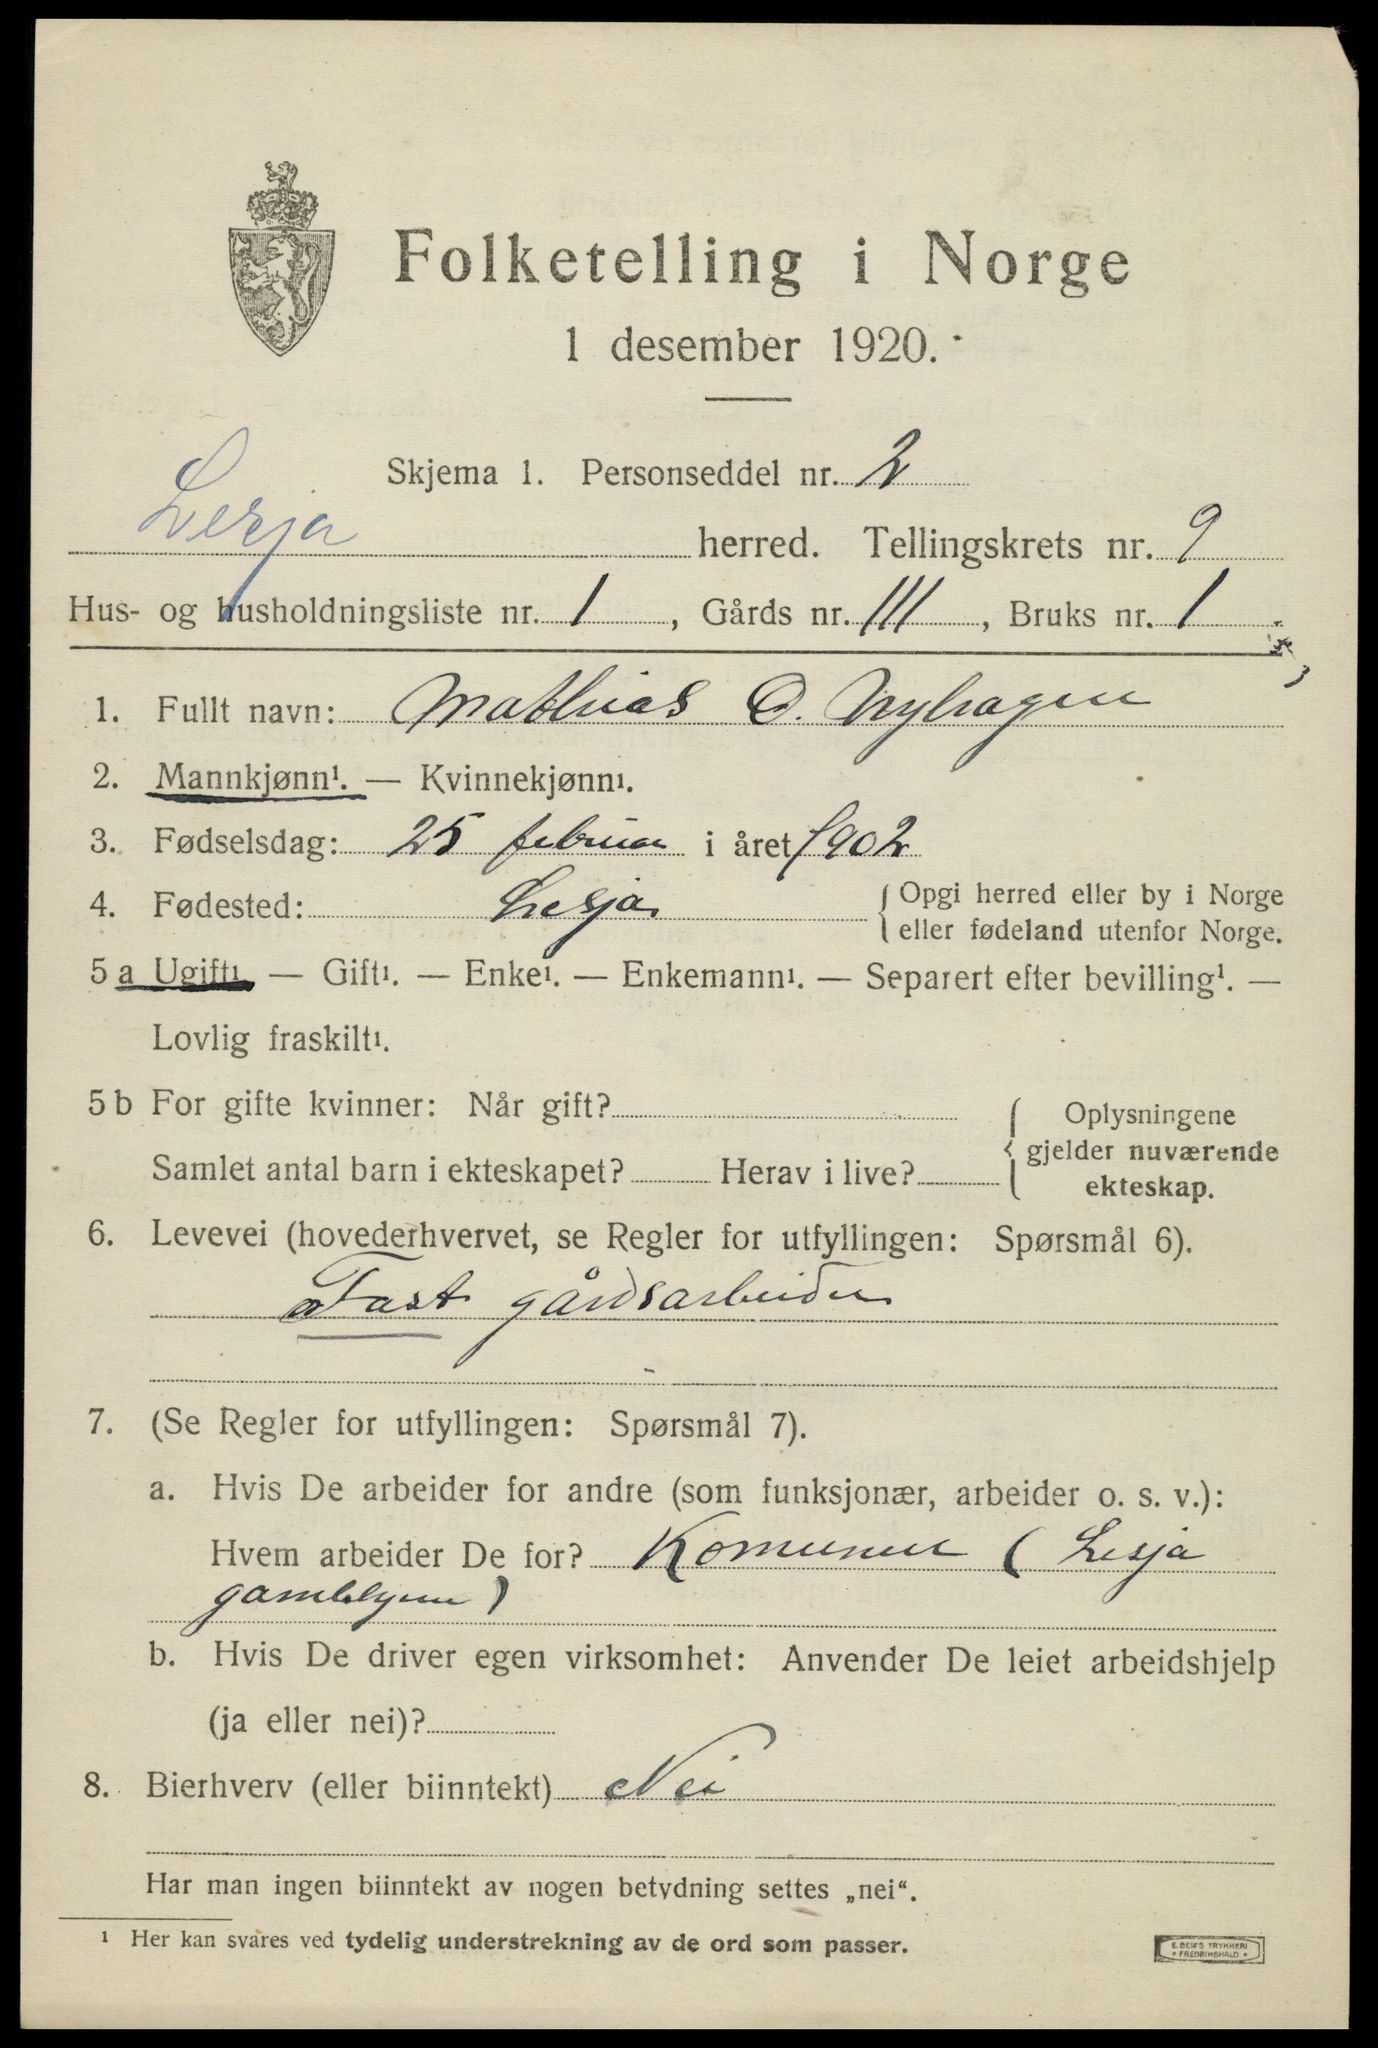 Folketelling i Norge
1 desember 1920.
Skjema 1. Personseddel nr. 2
Lesja herred. Tellingskrets nr. 9
Hus- og husholdningsliste nr. 1, Gårds nr. 111, Bruks nr. 1
1. Fullt navn: Mathias O. Nyhagen
2. Mannkjønn¹. — Kvinnekjønn¹.
3. Fødselsdag: 25 februar i året 1902
4. Fødested: Lesja { Opgi herred eller by i Norge
eller fødeland utenfor Norge.
5 a Ugift¹. — Gift¹. — Enke¹. — Enkemann¹. — Separert efter bevilling¹. —
Lovlig fraskilt¹.
5 b For gifte kvinner: Når gift? { Oplysningene
gjelder nuværende
Samlet antal barn i ekteskapet? Herav i live?
ekteskap.
6. Levevei (hovederhvervet, se Regler for utfyllingen: Spørsmål 6).
Fast gårdsarbeider
7. (Se Regler for utfyllingen: Spørsmål 7).
a. Hvis De arbeider for andre (som funksjonær, arbeider o. s. v.):
Hvem arbeider De for? Komunen ( Lesja
gamlehjem )
b. Hvis De driver egen virksomhet: Anvender De leiet arbeidshjelp
(ja eller nei)?
8. Bierhverv (eller biinntekt) Nei
Har man ingen biinntekt av nogen betydning settes „nei“.
¹ Her kan svares ved tydelig understrekning av de ord som passer.
E. SEM'S TRYKKERI
* FREDRIKSHALD *